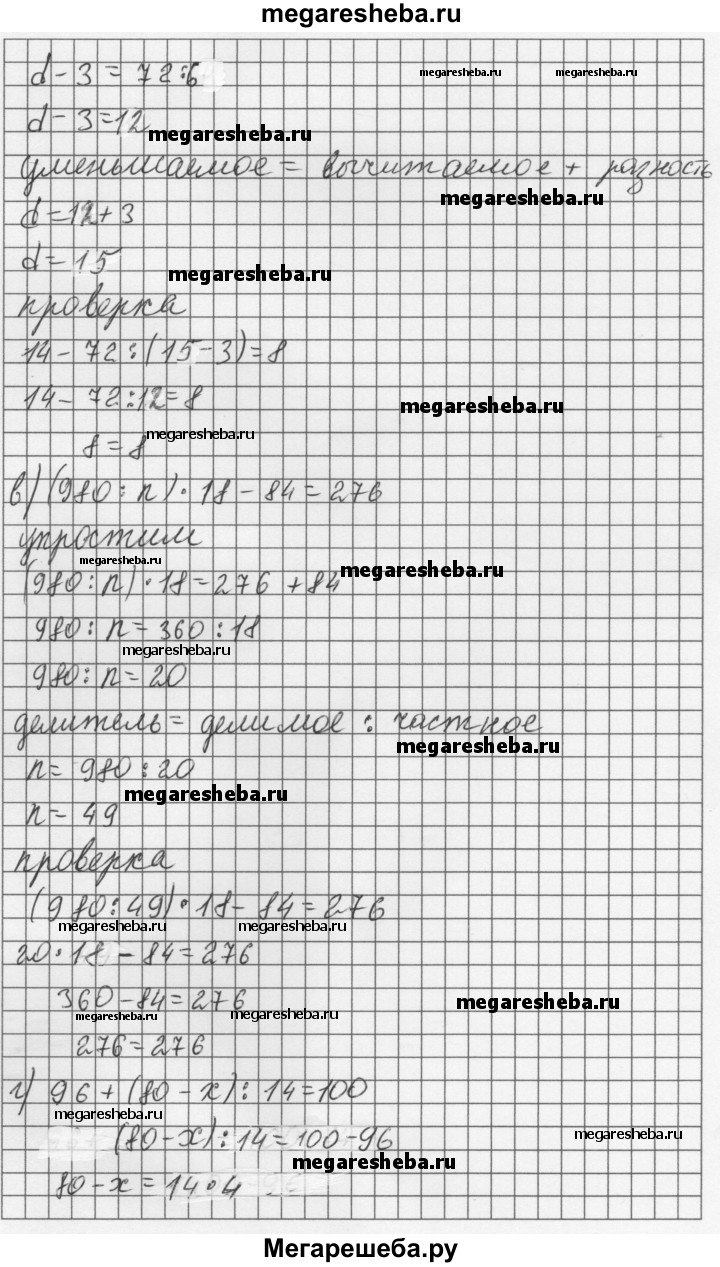 megaresheba.ru
d - 3 = 72:6
megaresheba.ru megaresheba.ru
d - 3 = 12
megaresheba.ru
уменьшаемое = вычитаемое + разность
megaresheba.ru
d = 12 + 3
d = 15
megaresheba.ru
проверка
14 - 72 : (15 - 3) = 8
14 - 72 : 12 = 8
megaresheba.ru
8 = 8
megaresheba.ru
в) (980 : n) · 18 - 84 = 276
упростим
megaresheba.ru
(980 : n) · 18 = 276 + 84
megaresheba.ru
980 : n = 360 : 18
megaresheba.ru
980 : n = 20
делитель = делимое : частное
megaresheba.ru
n = 980 : 20
megaresheba.ru
n = 49
проверка
(980 : 49) · 18 - 84 = 276
megaresheba.ru megaresheba.ru
20 · 18 - 84 = 276
360 - 84 = 276
megaresheba.ru
megaresheba.ru megaresheba.ru
276 = 276
г) 96 + (80 - x) : 14 = 100
megaresheba.ru
(80 - x) : 14 = 100 - 96
megaresheba.ru
megaresheba.ru
80 - x = 14 · 4
Мегарешеба.ру